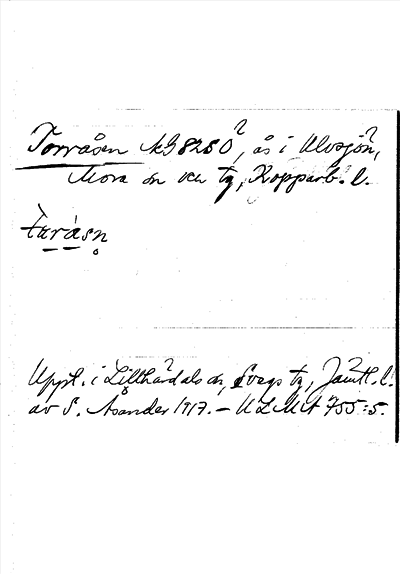 Torråsen kG 8280?, ås i Ulvsjön?,
Mora sn och tg, Kopparb. l.
tɷråsn̥
Uppt. i Lillhärdals sn, Svegs tg, Jämtl. l.
av S. Asander 1917. – ULMA 755:5.